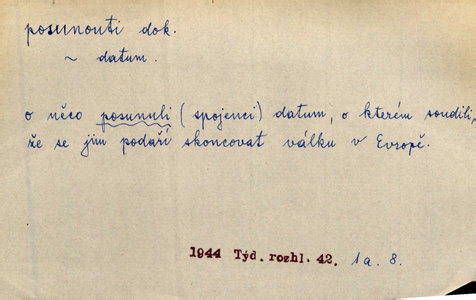 posunouti dok.
~ datum.
o něco posunuli (spojenci) datum, o kterém soudili,
že se jim podaří skoncovat válku v Evropě.
1944 Týd. rozhl. 42. 1a. 8.